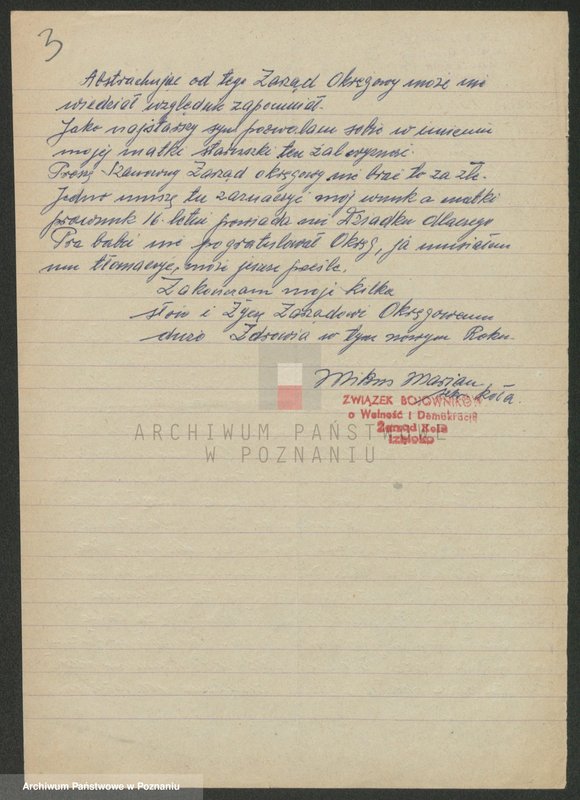 3
Abstrachując od tego Zarząd Okręgowy może nie
wiedział względnie zapomniał.
Jako najstarszy syn pozwalam sobie w imieniu
mojej matki staruszki ten żal wyrazić
Proszę Szanowny Zarząd okręgowy nie brać to za złe.
Jedno muszę tu zaznaczyć mój wnuk a matki
prawnuk 16-letni powiada mi Dziadku dlaczego
Pra babci nie pogratulował Okręg, ja musiałem
mu tłomaczyć, może jeszcze prześle.
Zakończam moje kilka
słów i Życzę Zarządowi Okręgowemu
dużo Zdrowia w tym nowym Roku.
Mikus Marian
sekr. koła.
ZWIĄZEK BOJOWNIKÓW
o Wolność i Demokrację
Zarząd Koła
ARCHIWUM PAŃSTWOWE
W POZNANIU
Archiwum Państwowe w Poznaniu